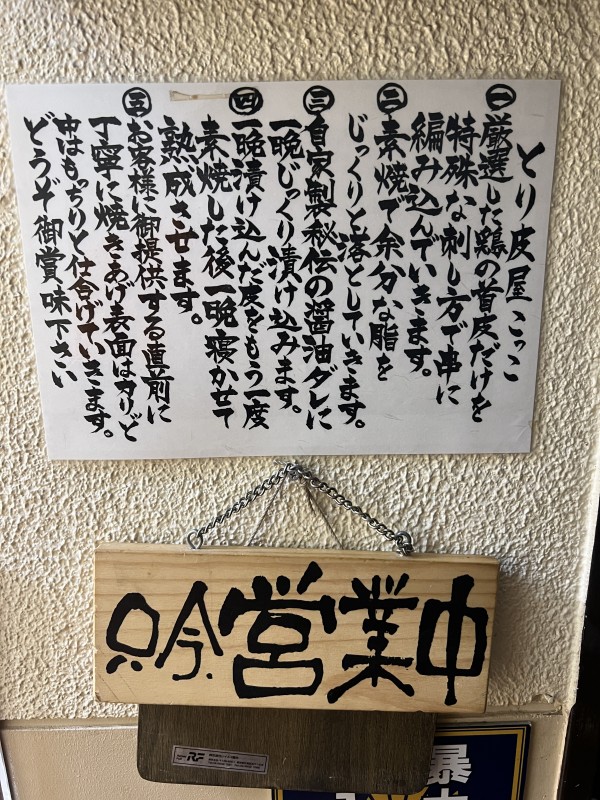 とり皮屋こっこ
㊀厳選した鶏の首皮だけを
特殊な刺し方で串に
編み込んでいきます。
㊁素焼で余分な脂を
じっくりと落としていきます。
㊂自家製秘伝の醤油ダレに
一晩じっくり漬け込みます。
㊃一晩漬け込んだ皮をもう一度
素焼した後一晩寝かせて
熟成させます。
㊄お客様に御提供する直前に
丁寧に焼きあげ表面はカリッと
中はもっちりと仕合げていきます。
どうぞ御賞味下さい
只今、営業中
RF
暴